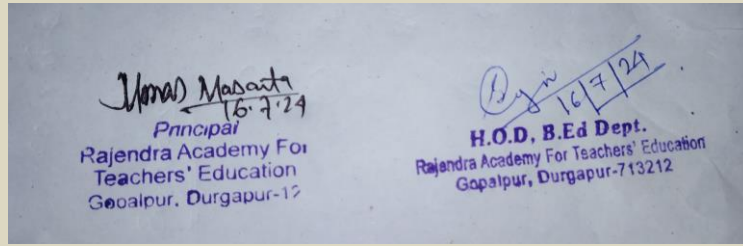 Monas Masanta
16.7.24
Principal
Rajendra Academy For
Teachers' Education
Gopalpur, Durgapur-12
16/7/24
H.O.D, B.Ed Dept.
Rajendra Academy For Teachers' Education
Gopalpur, Durgapur-713212